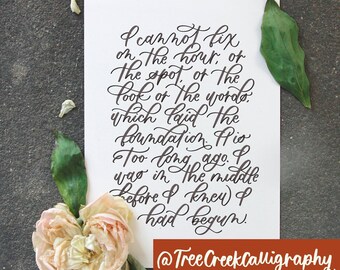 I cannot fix
on the hour, or
the spot, or the
look or the words,
which laid the
foundation. It is
too long ago. I
was in the middle
before I knew I
had begun.
@TreeCreekCalligraphy